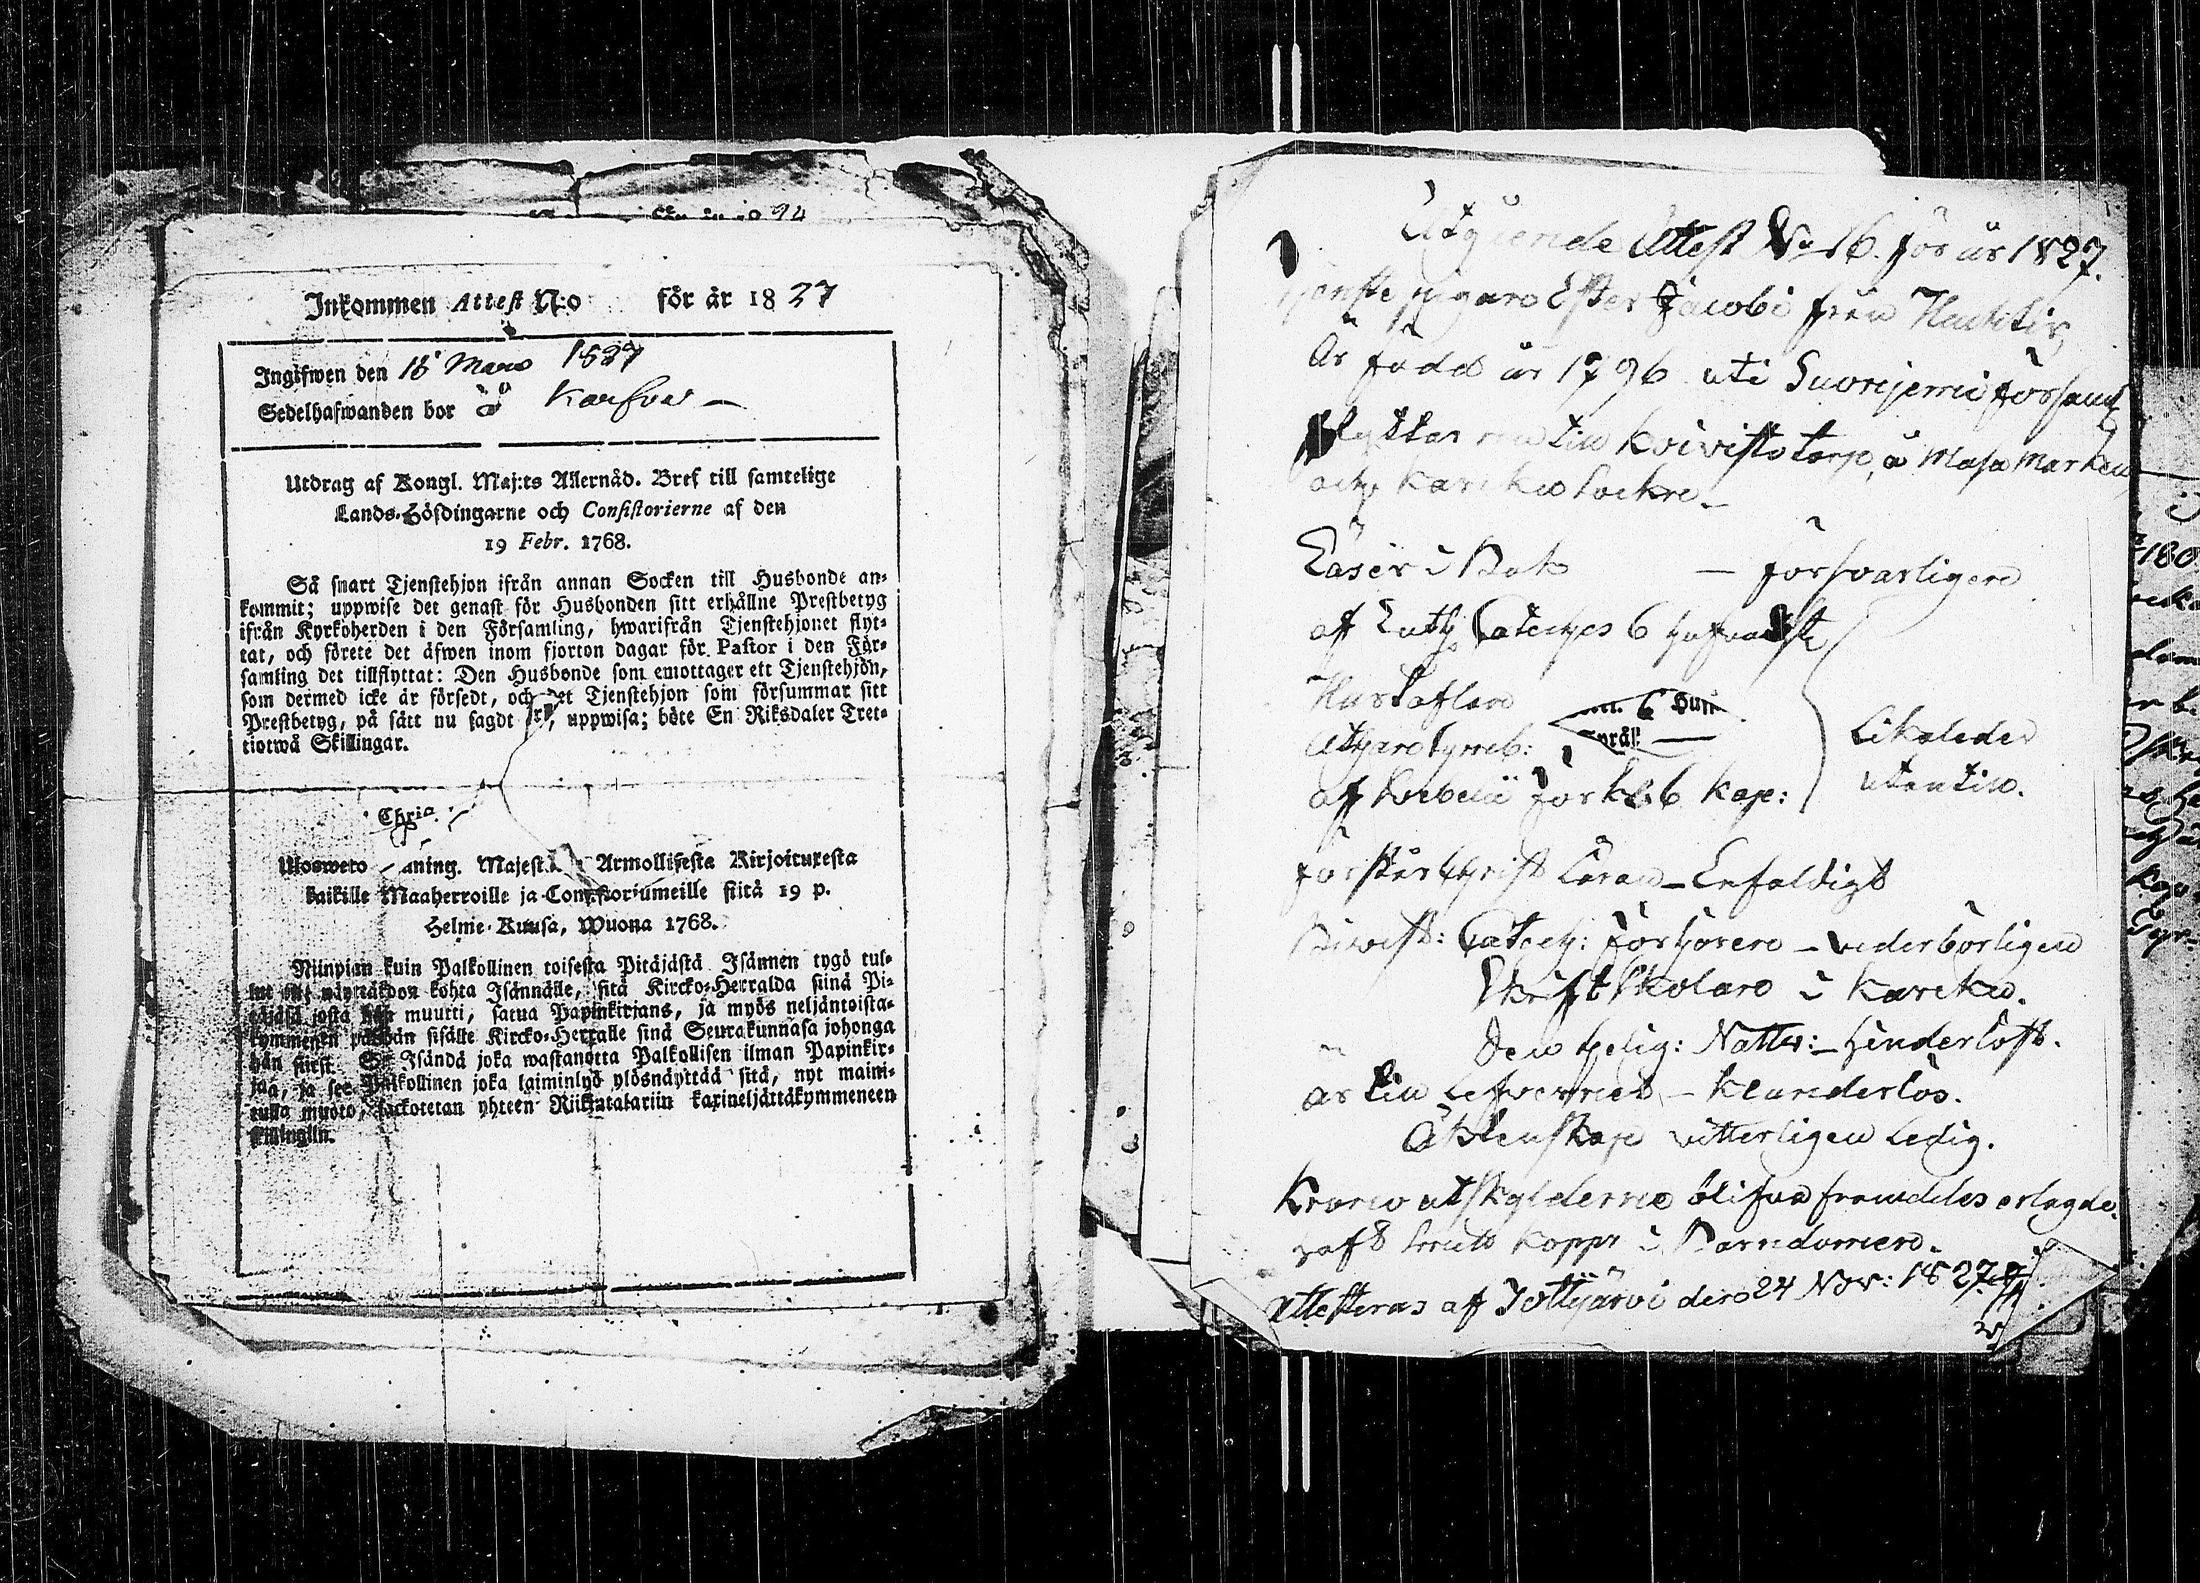 Inkommen Attest N:o för år 1827
Ingifwen den 18 Mars 1827
Sedelhafwanden bor å Karfva –
Utdrag af Kongl. Maj:ts Allernåd. Bref till samtelige
Lands-Höfdingarne och Consistorierne af den
19 Febr. 1768.
Så snart Tjenstehjon ifrån annan Socken till Husbonde an-
kommit; uppwise det genast för Husbonden sitt erhållne Prestbetyg
ifrån Kyrkoherden i den Församling, hwarifrån Tjenstehjonet flyt-
tat, och förete det äfwen inom fjorton dagar för Pastor i den För-
samling det tillflyttat: Den Husbonde som emottager ett Tjenstehjon,
som dermed icke är försedt, och det Tjenstehjon som försummar sitt
Prestbetyg, på sätt nu sagdt är, uppwisa; böte En Riksdaler Tret-
tiotwå Skillingar.
Chria.
Ulosweto aning. Majest. Armollisesta Kirjoituxesta
kaikille Maaherroille ja Consistoriumeille siitä 19 p.
Helme-Kuusa, Wuona 1768.
Niinpian kuin Palkollinen toisesta Pitäjästä Isännen tygö tul-
lut on, näyttäkön kohta Isännälle, sitä Kircko-Herralda siinä Pi-
täjäsä josta hän muutti, satua Papinkirjans, ja myös neljäntoista-
kymmenen päiwän sisälle Kircko-Herralle sinä Seurakunnasa johonga
hän siirst. Se Isändä joka wastanotta Palkollisen ilman Papinkir-
jaa, ja see Palkollinen joka laiminlyö ylösnäyttää sitä, nyt maini-
tulla muoto, sackotetan yhteen Riikintalariin kaxineljättäkymmeneen
skillingiin.
Utgående Attest No 16. för år 1827.
Ester Jacobi från
Är född år 1796 uti Suonijervi förSaml
Flyttar nu till Koivisto torp, å Masa Marken
och Karcku Sockn. –
Läser i Bok – försvarligen
af Luth. Cateches 6 hufvudst
Hustaflan
Athan. Symb:
af Svebelii förkl. 6 Kap:
Likaledes
utantill.
förstår Christ Läran – Enfaldigt
Bivist: Catech: förhören – vederbörligen
Skrift Skolan i Karcku.
Den Helig: Nattv: – hinderlöst.
är till Lefvernet – klanderlös.
Äktenskap vitterligen ledig.
Krono utskylderna blifva framdeles erlagde.
haft Små Koppr i Barndomen.
Attesteras af Jottijärvi den 24 Nov: 1827.